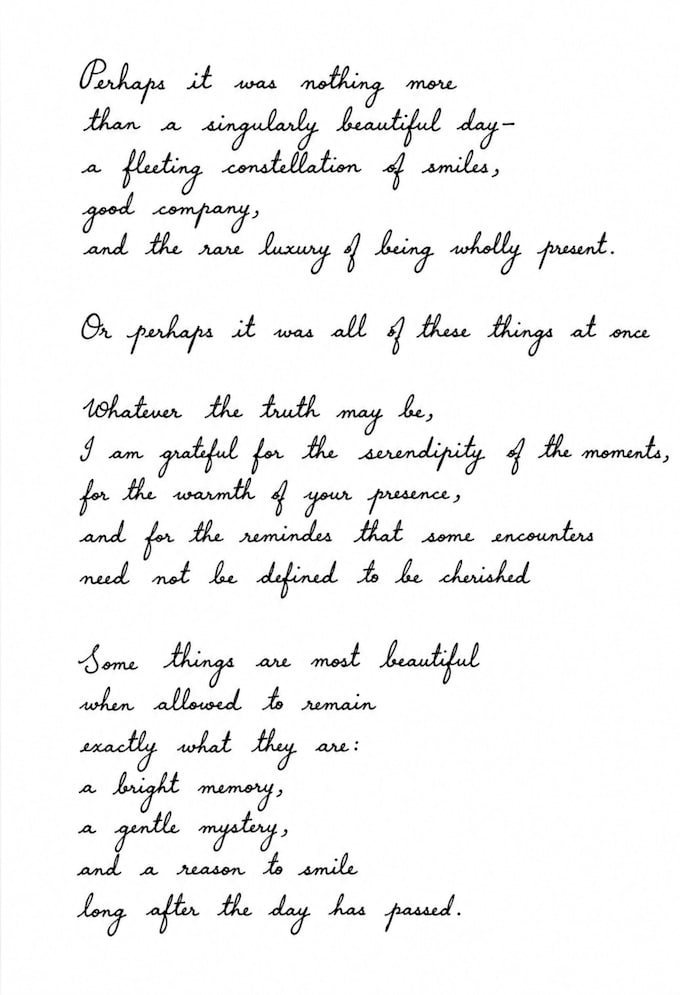 Perhaps it was nothing more
than a singularly beautiful day—
a fleeting constellation of smiles,
good company,
and the rare luxury of being wholly present.
Or perhaps it was all of these things at once
Whatever the truth may be,
I am grateful for the serendipity of the moments,
for the warmth of your presence,
and for the remindes that some encounters
need not be defined to be cherished
Some things are most beautiful
when allowed to remain
exactly what they are:
a bright memory,
a gentle mystery,
and a reason to smile
long after the day has passed.